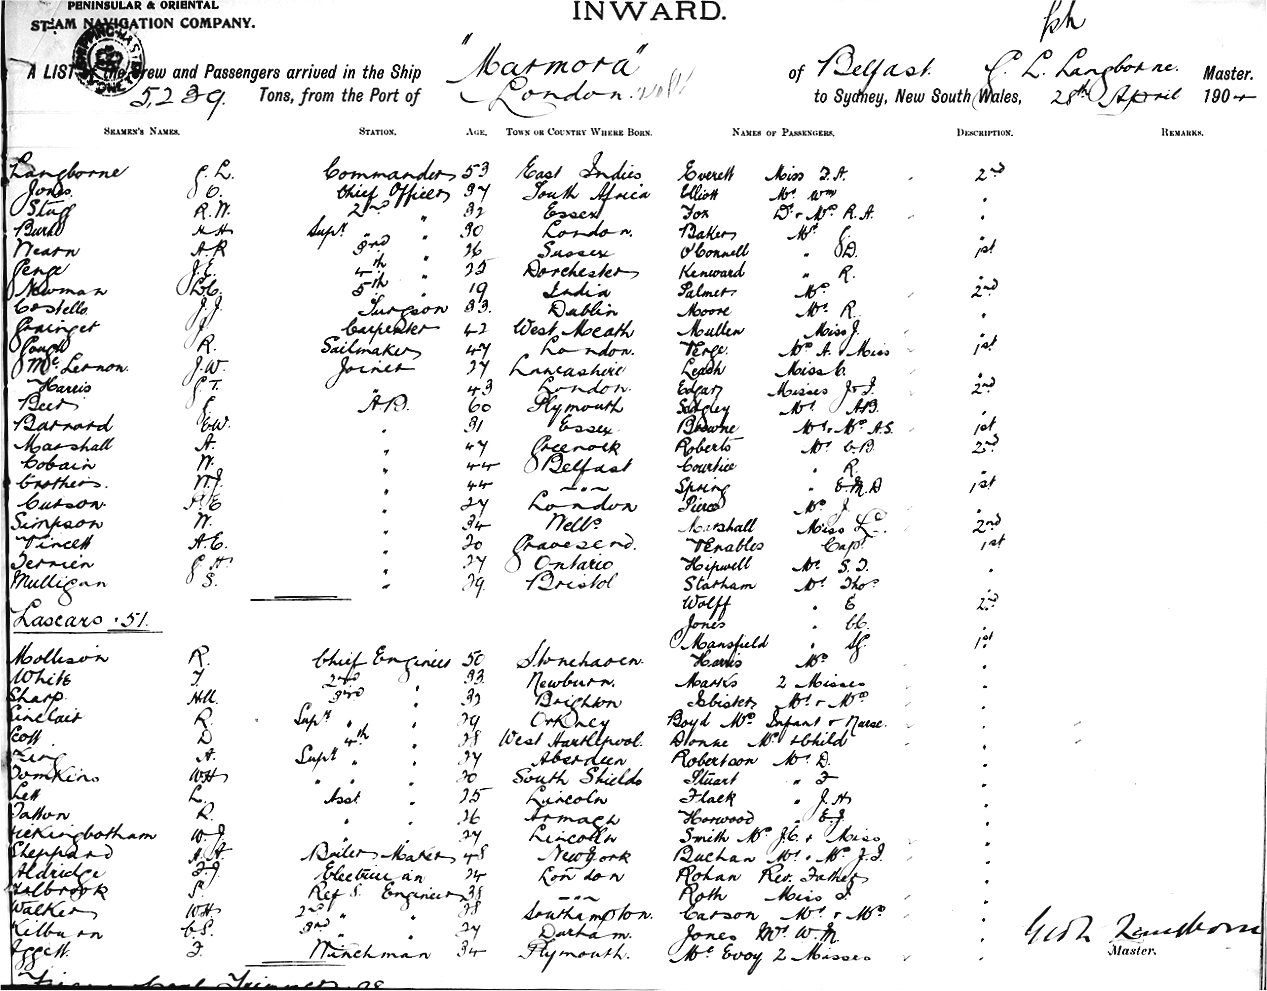 PENINSULAR & ORIENTAL
STEAM NAVIGATION COMPANY.
INWARD.
A LIST of the Crew and Passengers arrived in the Ship "Marmora" of Belfast. G. L. Langborne. Master.
5,239 Tons, from the Port of London. to Sydney, New South Wales, 28th April 1904
SEAMEN'S NAMES. STATION. AGE. TOWN OR COUNTRY WHERE BORN. NAMES OF PASSENGERS. DESCRIPTION. REMARKS.
Langborne G. L. Commander 53 East Indies Everett Miss F. A. 2nd
Jones C. Chief Officer 37 South Africa Elliott Mr Wm "
R. W. 2nd " 32 Essex Fox Dr & Mrs R. A. "
H Supy " 30 London. Baker Mr "
Nearn A R 3rd " 26 Sussex O'Connell " D. 1st
J. E. 4th " 25 Dorchester Kenward " R. "
Newman 5th " 19 India Palmer Mrs 2nd
Costello J. J. Surgeon 33. Dublin Moore Mr R. "
Grainger J Carpenter 42 West Meath Mullen Miss J. "
Gough R. Sailmaker 47 London. Verge Mrs A. & Miss 1st
McLernon. J. W. Joiner 27 Lancashire Leach Miss C. "
Harris G T. " 43 London. Edgar Misses J & I. 2nd
Beer G. A. B. 60 Plymouth Mr AB. "
Barnard E W. " 31 Essex Browne Mr & Mrs A. S. 1st
Marshall A. " 47 Greenock Roberts Mr C. B 2nd
Cobain W. " 44 Belfast Courtice " R. "
Crothers. W. J. " 44 -"- Spring " E M. D 1st
Curson H E " 27 London Pierce Mrs J. "
Simpson W. " 34 Wells Marshall Miss 2nd
Vincett A. E. " 20 Gravesend. Venables Capt 1st
Terrien G H " 27 Ontario Hipwell Mr S. F. "
Mulligan S. " 29. Bristol Statham Mr Thos "
Wolff " E 2nd
Lascars . 51. Jones " "
Mansfield " 1st
Mollison R. Chief Engineer 50 Stonehaven. Harris Mrs "
White T. 2nd " 33 Newburn. Marks 2 Misses "
Sharp 3rd " 32 Brighton Isbister Mr & Mrs "
Sinclair R. Supy " " 29 Orkney Boyd Mrs Infant & Nurse. "
D 4th " 28 West Hartlepool. Mrs & Child "
King A. Supy " " 27 Aberdeen Robertson Mr D. "
Tomkins W H " " " 20 South Shields Stuart " F "
Lett L. Asst " 25 Lincoln Flack " J. H "
Tatton R. " " 26 Armagh Horwood " E. J. "
Hickingbotham W. J. " " 27 Lincoln Smith Mrs J. C. & Miss "
Sheppard A. Boiler Maker 48 New York Buchan Mr & Mrs J. F. "
Aldridge F. J Electrician 24 London Rohan Rev. Father "
Holbrook S. Ref g. Engineer 38 -"- Roth Miss J. "
Walker W H 2nd " " 28 Southampton. Carson Mr & Mrs "
Kilburn C. S. 3rd " " 27 Durham. Jones Mr W. M. "
F. Winchman 34 Plymouth. McEvoy 2 Misses "
Master.